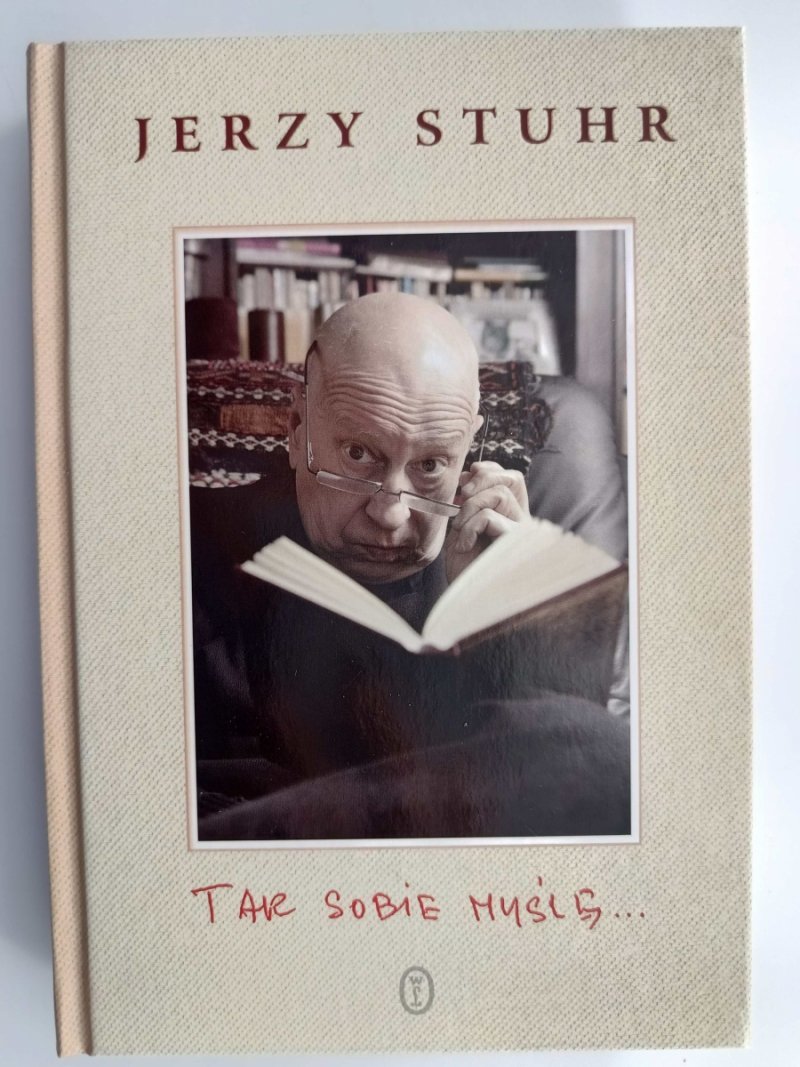 JERZY STUHR
TAK SOBIE MYŚLĘ...
WL